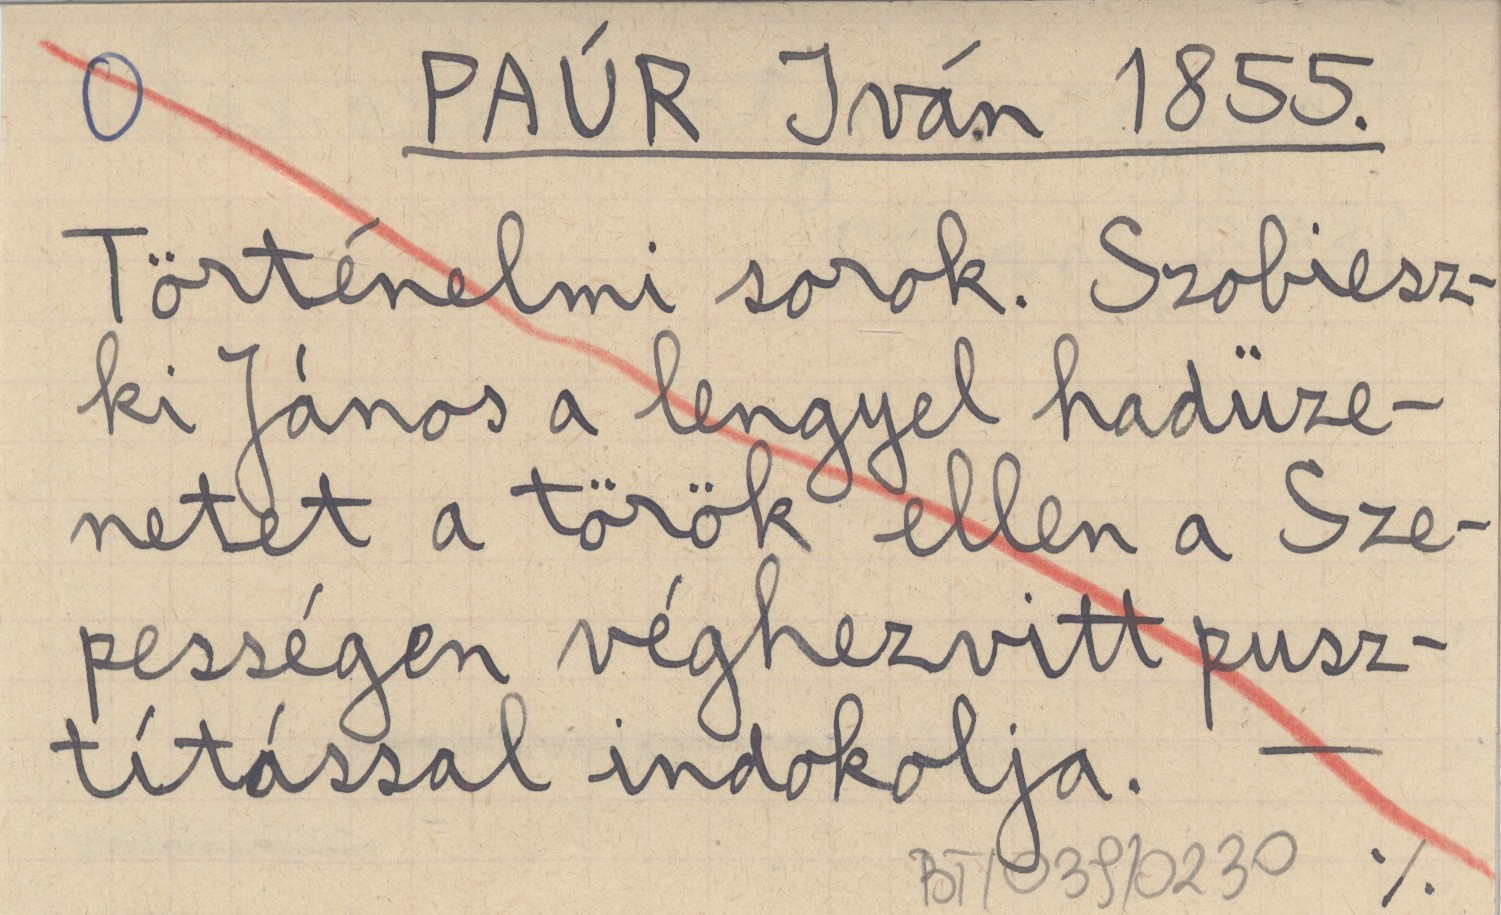 0 PAÚR Iván 1855.
Történelmi sorok. Szobiesz-
ki János a lengyel hadüze-
netet a török ellen a Sze-
pességen véghezvitt pusz-
títással indokolja. —
BT/039/0230 ·/.